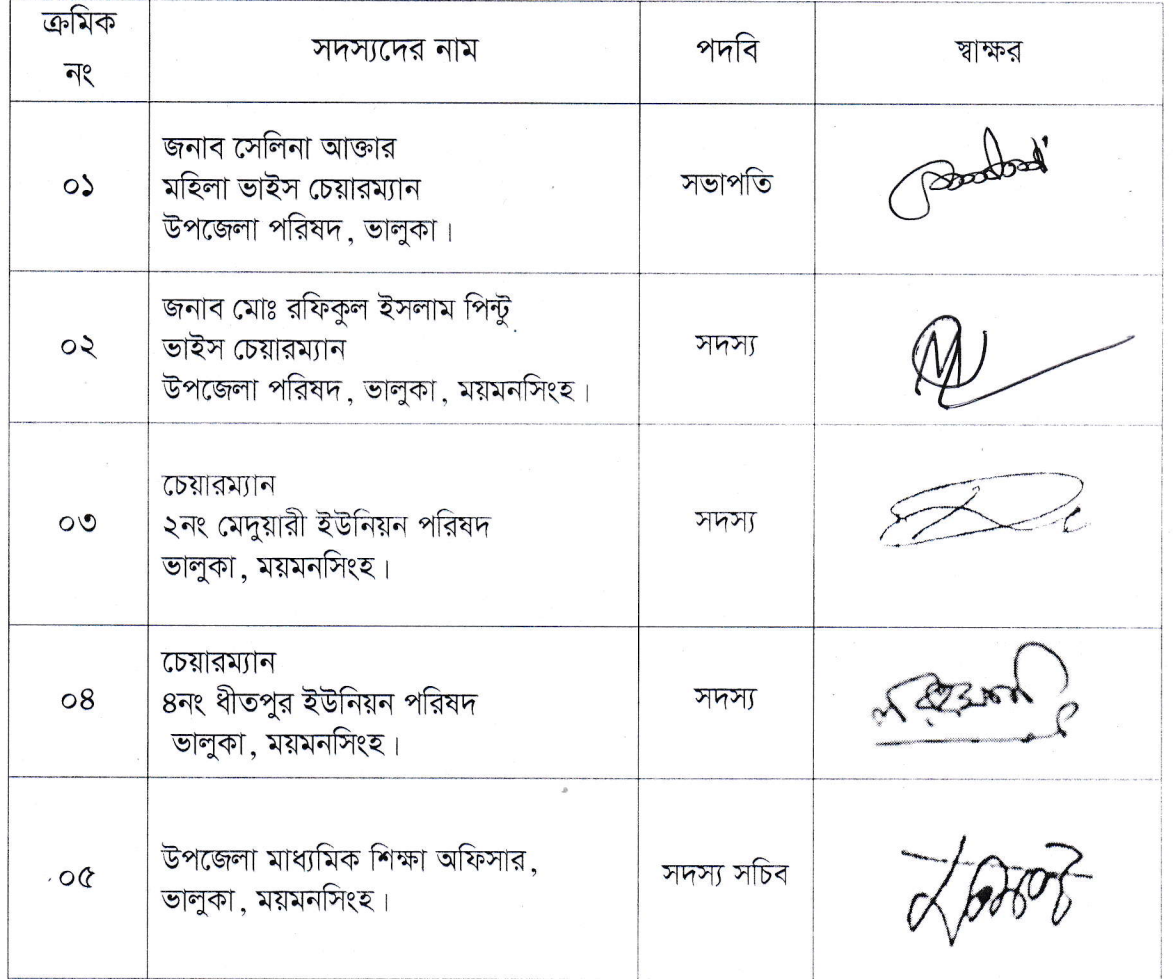 ক্রমিক
নং
সদস্যদের নাম
পদবি
স্বাক্ষর
০১
জনাব সেলিনা আক্তার
মহিলা ভাইস চেয়ারম্যান
উপজেলা পরিষদ, ভালুকা।
সভাপতি
০২
জনাব মোঃ রফিকুল ইসলাম পিন্টু
ভাইস চেয়ারম্যান
উপজেলা পরিষদ, ভালুকা, ময়মনসিংহ।
সদস্য
০৩
চেয়ারম্যান
২নং মেদুয়ারী ইউনিয়ন পরিষদ
ভালুকা, ময়মনসিংহ।
সদস্য
০৪
চেয়ারম্যান
৪নং ধীতপুর ইউনিয়ন পরিষদ
ভালুকা, ময়মনসিংহ।
সদস্য
০৫
উপজেলা মাধ্যমিক শিক্ষা অফিসার,
ভালুকা, ময়মনসিংহ।
সদস্য সচিব